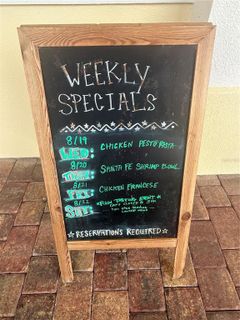 WEEKLY
SPECIALS
8/19
WED: CHICKEN PESTO PASTA
8/20
THU: SANTA FE SHRIMP BOWL
8/21
FRI: CHICKEN FRANCESE
8/22
SAT:
★RESERVATIONS REQUIRED★